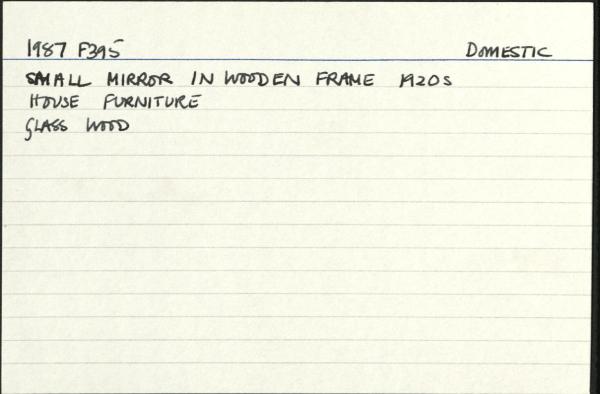 1987 F395 DOMESTIC
SMALL MIRROR IN WOODEN FRAME 1920S
HOUSE FURNITURE
GLASS WOOD